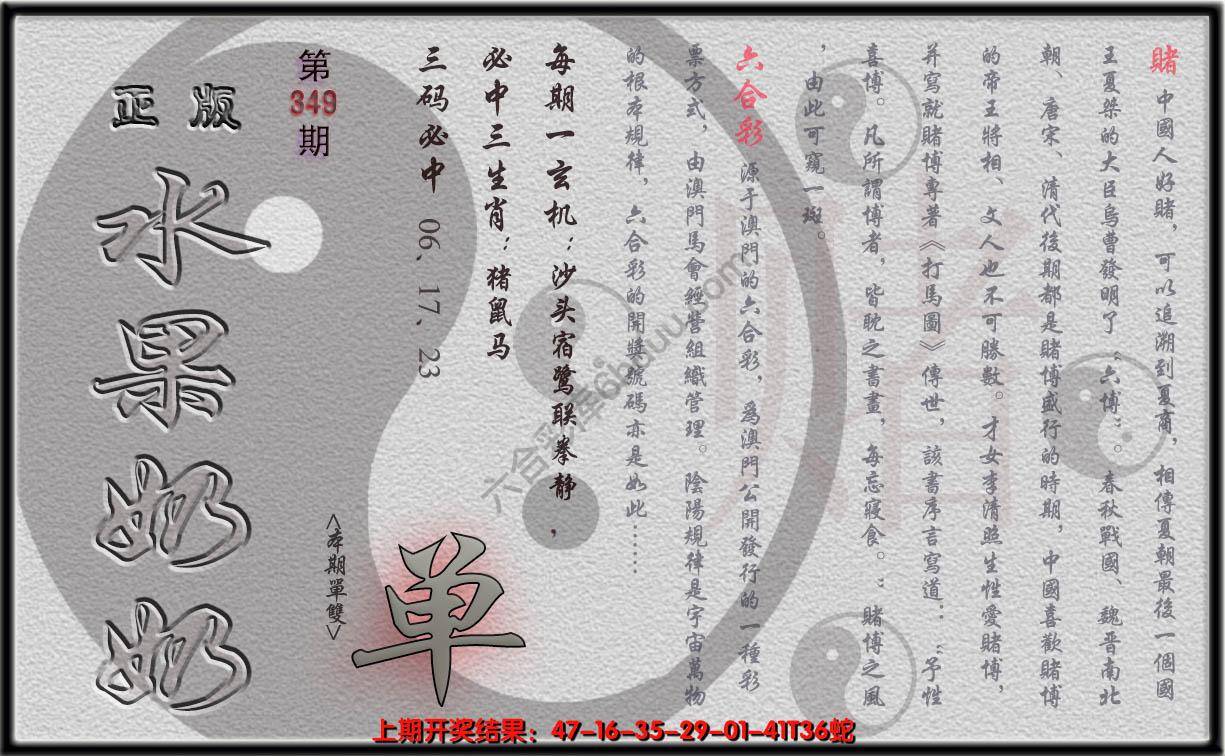 賭 中國人好賭，可以追溯到夏商，相傳夏朝最後一個國
王夏桀的大臣烏曹發明了“六博”。春秋戰國、魏晋南北
朝、唐宋、清代後期都是賭博盛行的時期，中國喜歡賭博
的帝王將相、文人也不可勝數。才女李清照生性愛賭博，
并寫就賭博專著《打馬圖》傳世，該書序言寫道：“予性
喜博。凡所謂博者，皆耽之晝畫，每忘寢食。”賭博之風
，由此可窺一斑。
六合彩 源于澳門的六合彩，爲澳門公開發行的一種彩
票方式，由澳門馬會經營組織管理。陰陽規律是宇宙萬物
的根本規律，六合彩的開獎號碼亦是如此……
每期一玄机：沙头宿鹭联拳静，
必中三生肖：猪鼠马
三码必中 06、17、23
第349期
正版
水果奶奶
<本期單雙>
单
上期开奖结果：47-16-35-29-01-41T36蛇